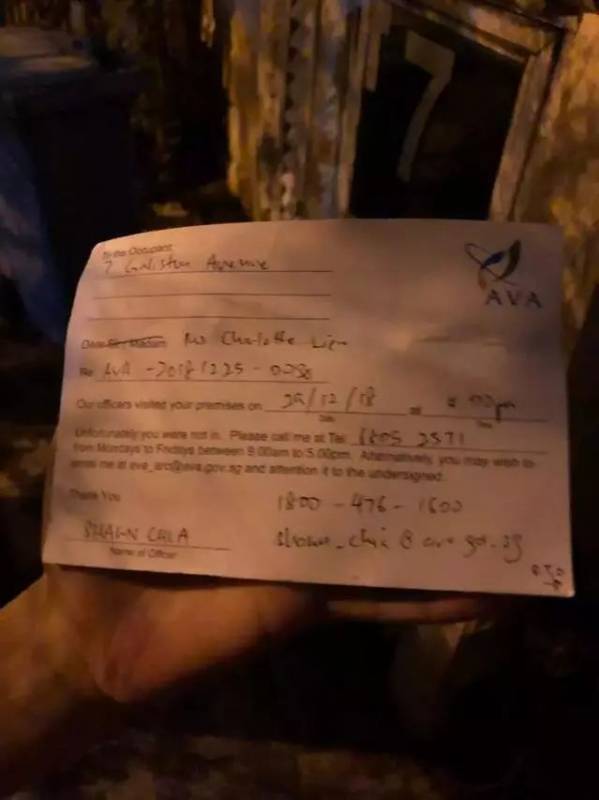 7
To the Occupant:
7 Galistan Avenue
AVA
Dear Sir / Madam Ms Charlotte
Re AVA - 20181225 -
Our officers visited your premises on 25/12/18 at
Date Time
Unfortunately you were not in. Please call me at Tel: 6805 2571
from Mondays to Fridays between 9.00am to 5.00pm. Alternatively, you may wish to
email me at ava_arc@ava.gov.sg and attention it to the undersigned.
Thank You
1800 - 476 - 1600
SHAWN CHIA
Name of Officer
shawn_chia@ava.gov.sg